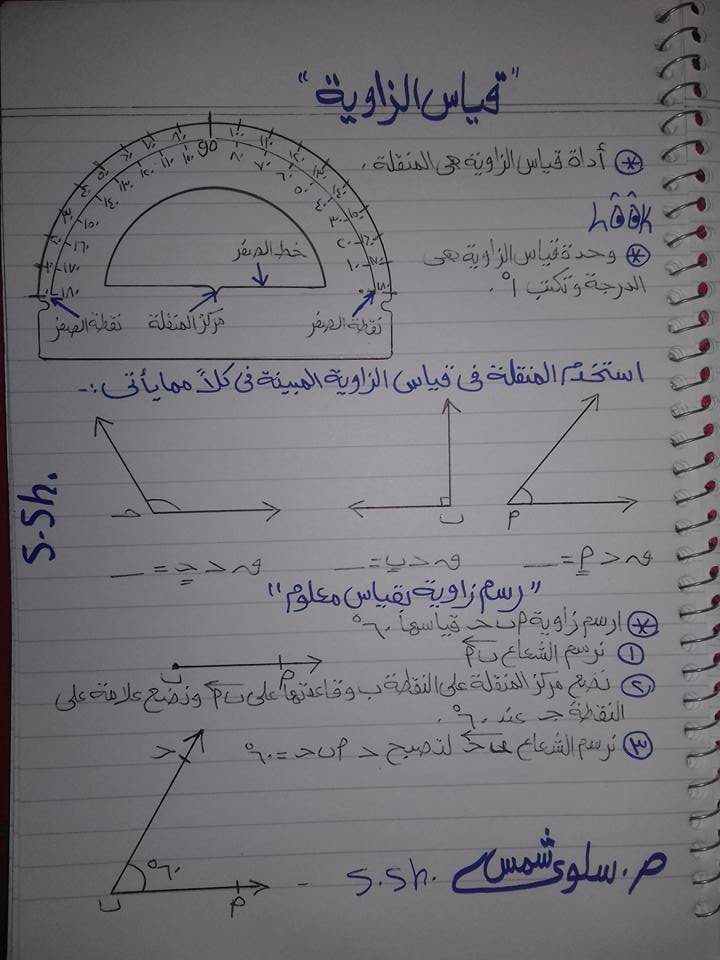 "قياس الزاوية"
* أداة قياس الزاوية هى المنقلة.
look
* وحدة قياس الزاوية هى
الدرجة وتكتب ١°.
٠ ١٠ ٢٠ ٣٠ ٤٠ ٥٠ ٦٠ ٧٠ ٨٠ 90 ١٠٠ ١١٠ ١٢٠ ١٣٠ ١٤٠ ١٥٠ ١٦٠ ١٧٠ ١٨٠
١٨٠ ١٧٠ ١٦٠ ١٥٠ ١٤٠ ١٣٠ ١٢٠ ١١٠ ١٠٠ ٨٠ ٧٠ ٦٠ ٥٠ ٤٠ ٣٠ ٢٠ ١٠ ٠
خط الصفر
نقطة الصفر مركز المنقلة نقطة الصفر
استخدم المنقلة فى قياس الزاوية المبينة فى كلاً مما يأتى :-
م ب حـ
ق < م = __ ق < ب = __ ق < حـ = __
S.Sh.
"رسم زاوية بقياس معلوم"
* ارسم زاوية م ب حـ قياسها ٦٠°
١ نرسم الشعاع ب م
ب م
٢ نضع مركز المنقلة على النقطة ب وقاعدتها على ب م ونضع علامة على
النقطة جـ عند ٦٠°.
٣ نرسم الشعاع ب حـ لتصبح < م ب حـ = ٦٠°
حـ
٦٠°
ب م
م. سلوى شمس S.Sh.